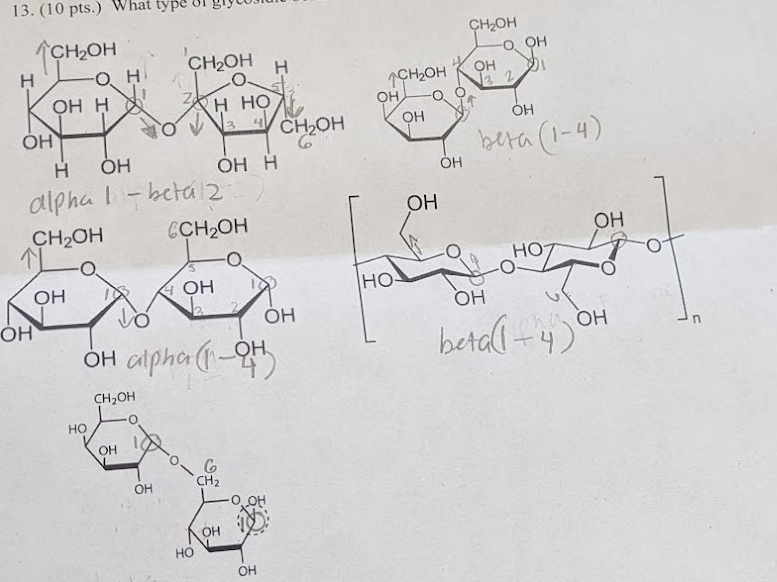 13. (10 pts.) What type of
CH₂OH
H
O
H
1
OH
H
OH
H
OH
O
1
CH₂OH
O
H
2
5
H
HO
3
4
CH₂OH
6
OH
H
alpha 1 - beta 2
CH₂OH
O
OH
4
OH
1
3
2
OH
O
CH₂OH
OH
O
OH
OH
beta (1-4)
CH₂OH
O
OH
1
OH
OH
O
6CH₂OH
5
O
4
OH
1
3
2
OH
OH
alpha (1-4)
OH
O
HO
OH
O
OH
HO
O
O
OH
n
beta(1-4)
CH₂OH
HO
O
OH
1
O
OH
6
CH₂
O
OH
1
OH
HO
OH